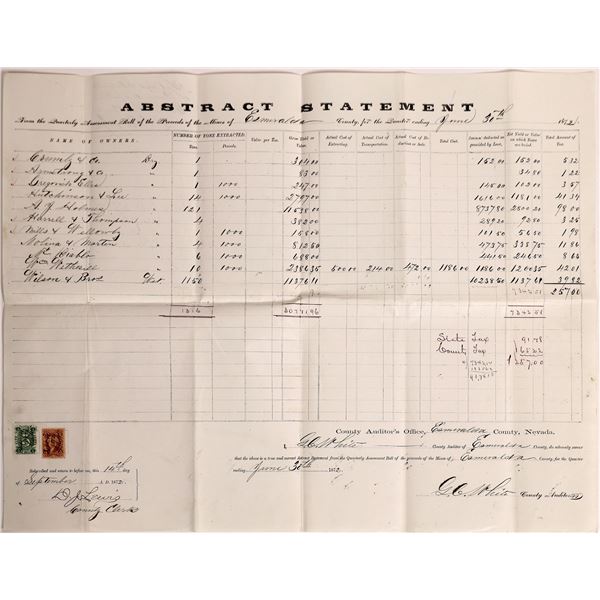 ABSTRACT STATEMENT
From the Quarterly Assessment Roll of the Proceeds of the Mines of Esmeralda County for the Quarter ending June 30th 1872
NAME OF OWNERS. NUMBER OF TONS EXTRACTED. Value per Ton. Gross Yield or Value. Actual Cost of Extracting. Actual Cost of Transportation. Actual Cost of Reduction or Sale. Total Cost. Amount deducted as provided by Law. Net Yield or Value on which Taxes are levied. Total Amount of Tax.
Tons. Pounds.
& Co Dry 1 304 00 152 00 152 00 5.32
Armstrong & Co " 1 83 00 34 80 1.22
" 1 1000 247 00 145 00 102 00 3.57
Hutchinson & Lee " 14 1000 1616 00 1181 00 41.34
A. J. Holmes " 121 11538 00 8737 80 2800 20 98 00
Harrell & Thompson " 4 382 00 289 20 92 80 3.25
Mills & Willoughby " 1 1000 158 00 101 50 56 50 1.98
Molina & Martin " 4 1000 812 60 473 75 338 75 11.86
" 6 1000 688 00 441 50 246 50 8.63
" 10 1000 2386 35 500 00 214 00 472 00 1186 00 1186 00 1200 35 42 01
Wilson & Bros Wet 1150 11376 11 10238 50 1137 61 39.82
7342.51 257.00
1316 7342.51
State Tax 91.78
County Tax 165.22
257.00
County Auditor's Office, Esmeralda County, Nevada.
I, G.C. White County Auditor of Esmeralda County, do solemnly swear
that the above is a true and correct Abstract Statement from the Quarterly Assessment Roll of the proceeds of the Mines of Esmeralda County, for the Quarter
ending June 30th 1872.
Subscribed and sworn to before me, this 14th day
of September A. D. 1872
D. J. Lewis
County Clerk
G. C. White County Auditor